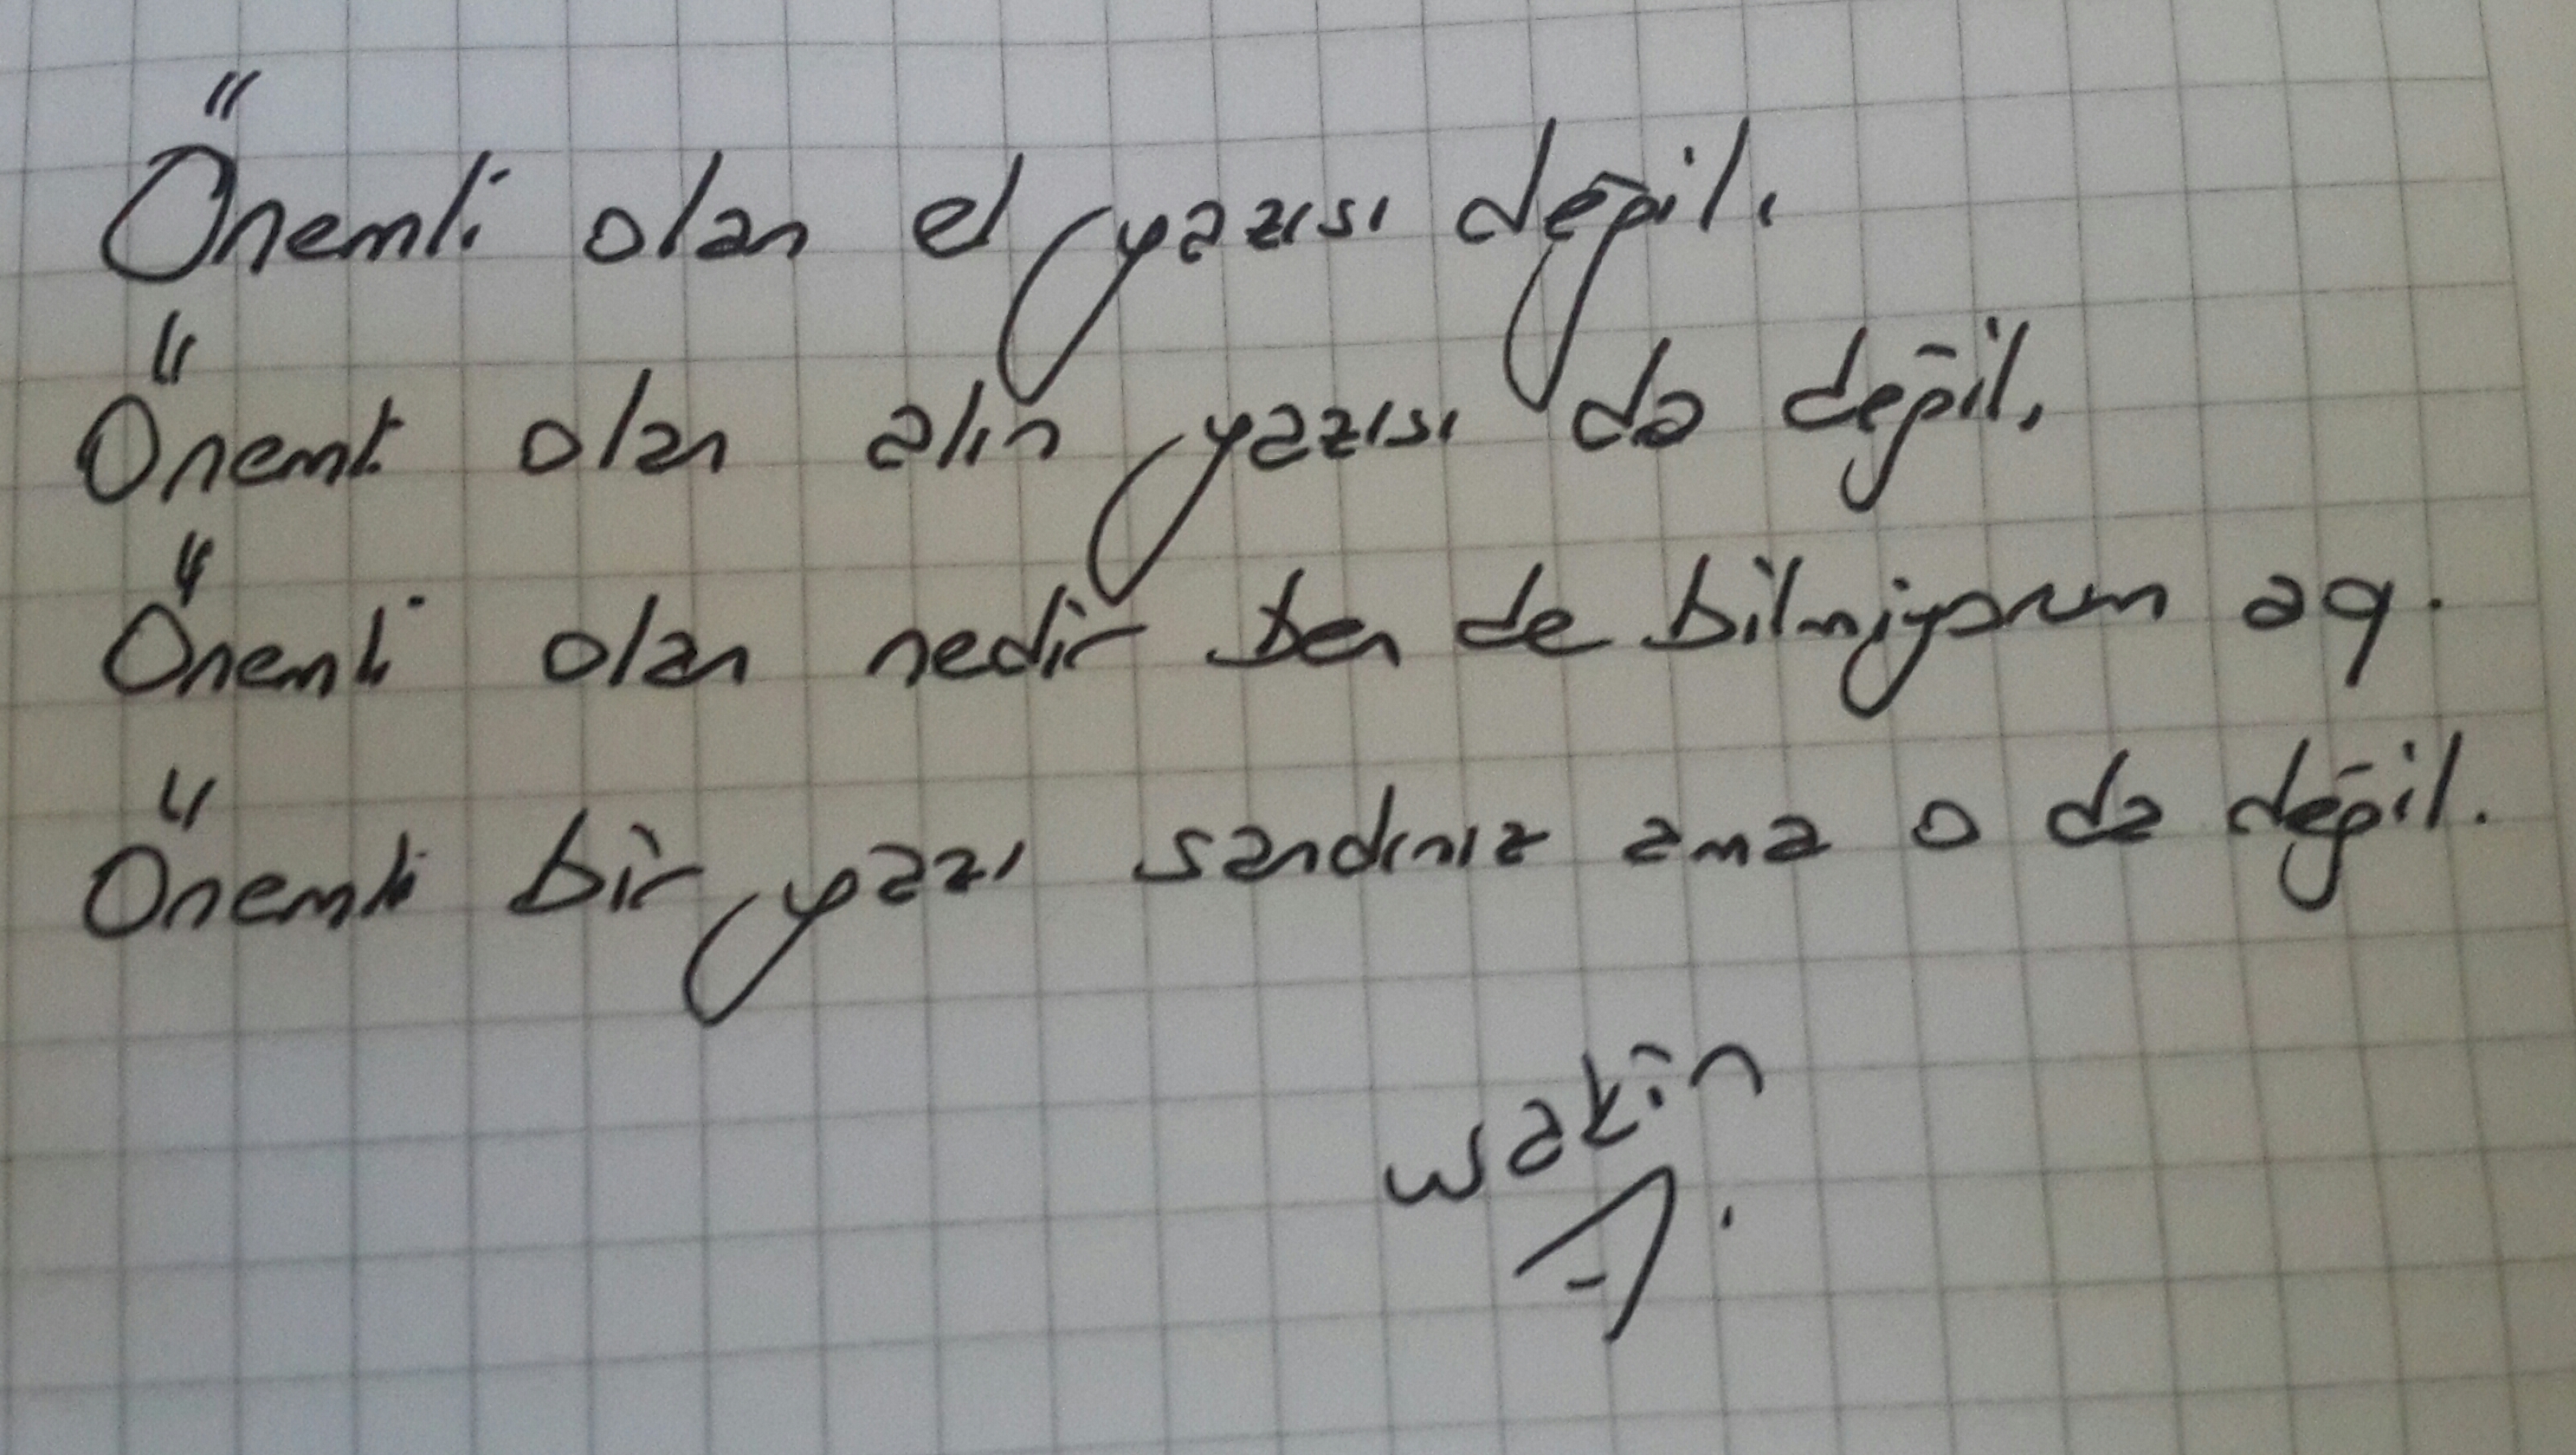 Önemli olan el yazısı değil.
Önemli olan alın yazısı da değil.
Önemli olan nedir ben de bilmiyorum aq.
Önemli bir yazı sandınız ama o da değil.
wakin